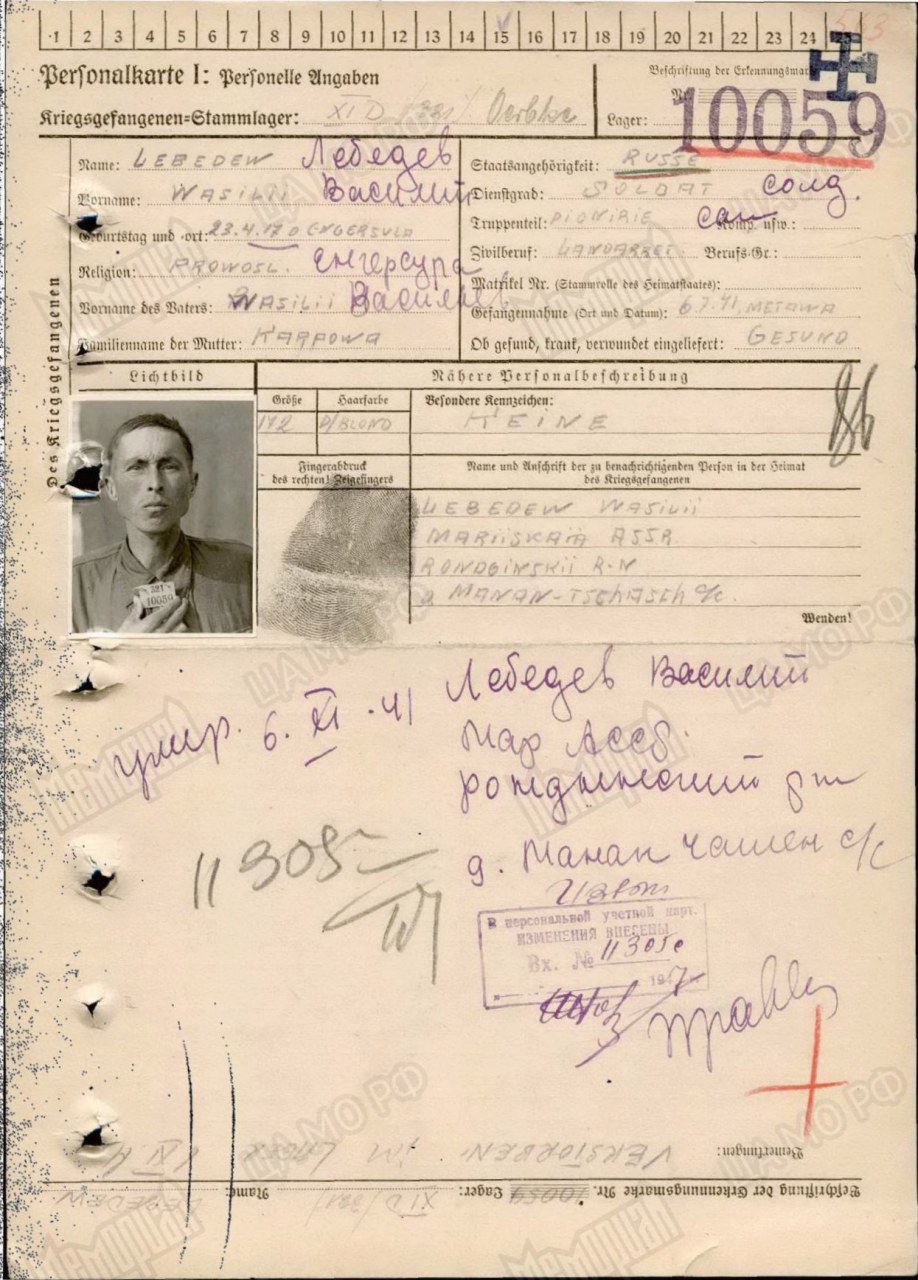 1 2 3 4 5 6 7 8 9 10 11 12 13 14 15 16 17 18 19 20 21 22 23 24
Personalkarte I: Personelle Angaben
Kriegsgefangenen=Stammlager: XI D (321) Oerbke
Beschriftung der Erkennungsmarke
Nr. 10059
Lager:
Des Kriegsgefangenen
Name: LEBEDEW Лебедев
Vorname: WASILII Василий
Geburtstag und -ort: 23.4.17 ENGERSULA
Religion: PROWOSL. Енгерсура
Vorname des Vaters: WASILII Василий
Familienname der Mutter: KARPOWA
Staatsangehörigkeit: RUSSE
Dienstgrad: SOLDAT солд.
Truppenteil: PIONIRIE Komp. usw.: сап
Zivilberuf: LANDARBEI Berufs-Gr.:
Matrikel Nr. (Stammrolle des Heimatstaates):
Gefangennahme (Ort und Datum): 6.7.41, METAWA
Ob gesund, krank, verwundet eingeliefert: GESUND
Lichtbild
Nähere Personalbeschreibung
Größe Haarfarbe Besondere Kennzeichen:
172 D/BLOND KEINE
Fingerabdruck
des rechten! Zeigefingers
Name und Anschrift der zu benachrichtigenden Person in der Heimat
des Kriegsgefangenen
LEBEDEW WASILII
MARIISKAIA ASSR
RONDGINSKII R-N
D MANAN-TSCHASCH C/C.
Wenden!
321
10059
Лебедев Василий
умер. 6. XI. 41
Мар Ассб.
д. Манан Чашен с/с
11305
В персональной учетной карт.
ИЗМЕНЕНИЯ ВНЕСЕНЫ
Вх. № 11305с
1947
Bemerkungen: VERSTORBEN IM LAGER 6 XI 41
Beschriftung der Erkennungsmarke Nr. 10059 Lager: XI D/321 Name: LEBEDEW
Мемориал
ЦАМО РФ